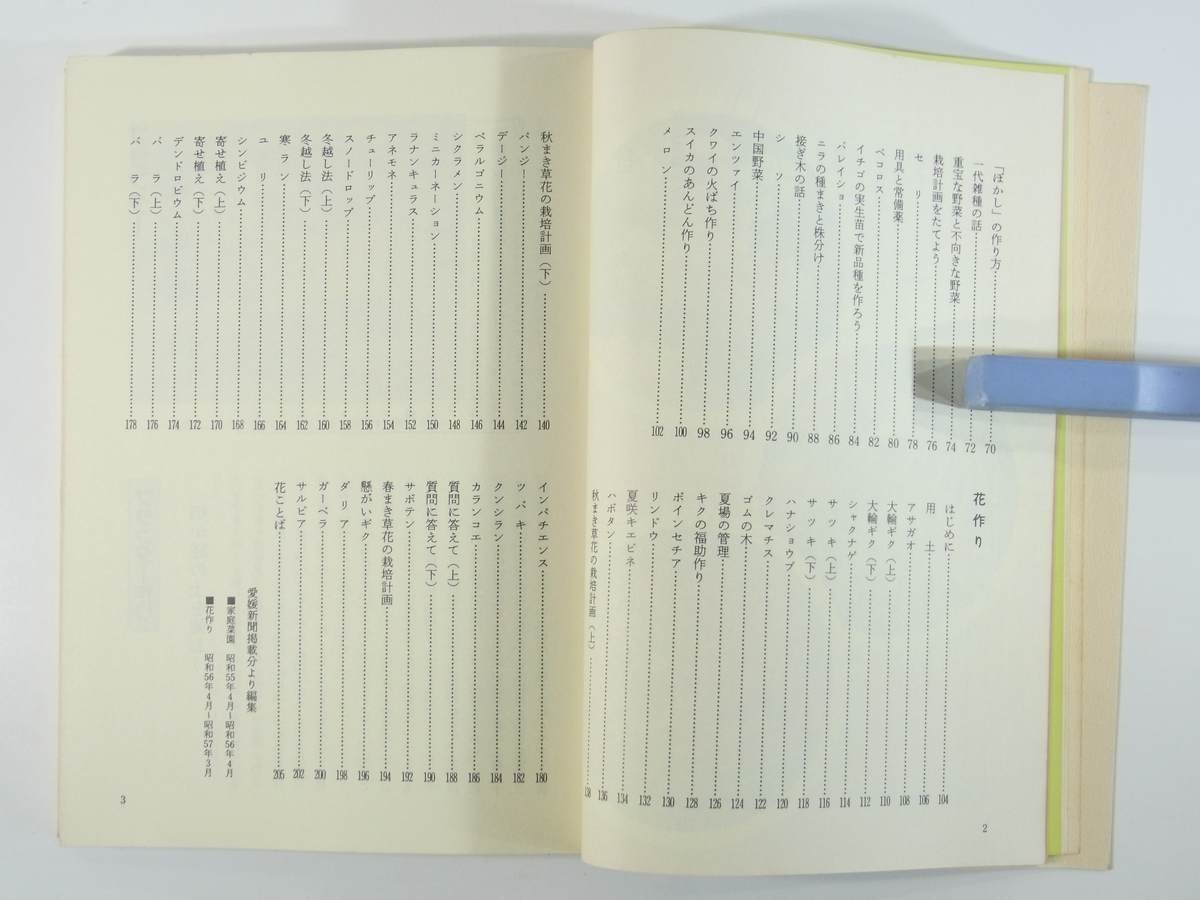 「ぼかし」の作り方……70
一代雑種の話……72
重宝な野菜と不向きな野菜……74
栽培計画をたてよう……76
セリ……78
用具と常備薬……80
ペコロス……82
イチゴの実生苗で新品種を作ろう……84
バレイショ……86
ニラの種まきと株分け……88
接ぎ木の話……90
シソ……92
中国野菜……94
エンツァイ……96
クワイの火ばち作り……98
スイカのあんどん作り……100
メロン……102
花作り
はじめに……104
用土……106
アサガオ……108
大輪ギク（上）……110
大輪ギク（下）……112
シャクナゲ……114
サツキ（上）……116
サツキ（下）……118
ハナショウブ……120
クレマチス……122
ゴムの木……124
夏場の管理……126
キクの福助作り……128
ポインセチア……130
リンドウ……132
夏咲キエビネ……134
ハボタン……136
秋まき草花の栽培計画（上）……138
2
秋まき草花の栽培計画（下）……140
パンジー……142
デージー……144
ペラルゴニウム……146
シクラメン……148
ミニカーネーション……150
ラナンキュラス……152
アネモネ……154
チューリップ……156
スノードロップ……158
冬越し法（上）……160
冬越し法（下）……162
寒ラン……164
ユリ……166
シンビジウム……168
寄せ植え（上）……170
寄せ植え（下）……172
デンドロビウム……174
バラ（上）……176
バラ（下）……178
インパチエンス……180
ツバキ……182
クンシラン……184
カランコエ……186
質問に答えて（上）……188
質問に答えて（下）……190
サボテン……192
春まき草花の栽培計画……194
懸がいギク……196
ダリア……198
ガーベラ……200
サルビア……202
花ことば……205
愛媛新聞掲載分より編集
■家庭菜園 昭和55年4月－昭和56年4月
■花作り 昭和56年4月－昭和57年3月
3